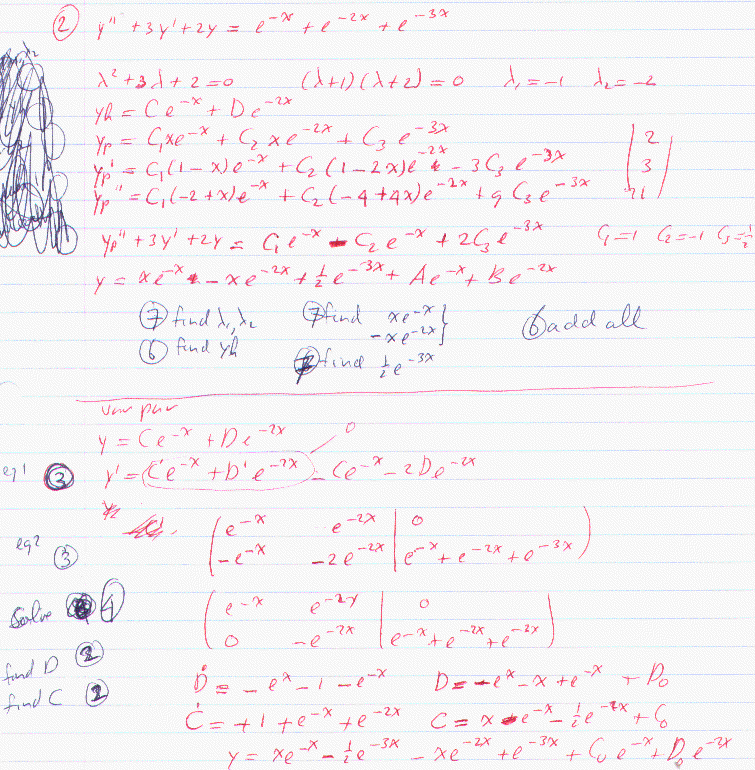 ② y'' + 3y' + 2y = e^{-x} + e^{-2x} + e^{-3x}
λ² + 3λ + 2 = 0 (λ+1)(λ+2) = 0 λ₁ = -1 λ₂ = -2
yh = Ce^{-x} + De^{-2x}
yp = C₁xe^{-x} + C₂xe^{-2x} + C₃e^{-3x} | 2
yp' = C₁(1-x)e^{-x} + C₂(1-2x)e^{-2x} - 3C₃e^{-3x} | 3
yp'' = C₁(-2+x)e^{-x} + C₂(-4+4x)e^{-2x} + 9C₃e^{-3x} | 1
yp'' + 3y' + 2y = C₁e^{-x} - C₂e^{-x} + 2C₃e^{-3x} C₁=1 C₂=-1 C₃=½
y = xe^{-x} - xe^{-2x} + ½e^{-3x} + Ae^{-x} + Be^{-2x}
⑦ find λ₁,λ₂ ⑦ find xe^{-x} -xe^{-2x} } ⑥ add all
⑥ find yh find ½e^{-3x}
var par
y = Ce^{-x} + De^{-2x} 0
eq1 ③ y' = C'e^{-x} + D'e^{-2x} - Ce^{-x} - 2De^{-2x}
( e^{-x} e^{-2x} | 0 )
eq2 ③ ( -e^{-x} -2e^{-2x} | e^{-x} + e^{-2x} + e^{-3x} )
Solve 4 ( e^{-x} e^{-2x} | 0 )
( 0 -e^{-2x} | e^{-x} + e^{-2x} + e^{-2x} )
find D ② Ḋ = -e^{x} - 1 - e^{-x} D = -e^{x} - x + e^{-x} + D₀
find C ② Ċ = +1 + e^{-x} + e^{-2x} C = x - e^{-x} - ½e^{-2x} + C₀
y = xe^{-x} - ½e^{-3x} - xe^{-2x} + e^{-3x} + C₀e^{-x} + D₀e^{-2x}